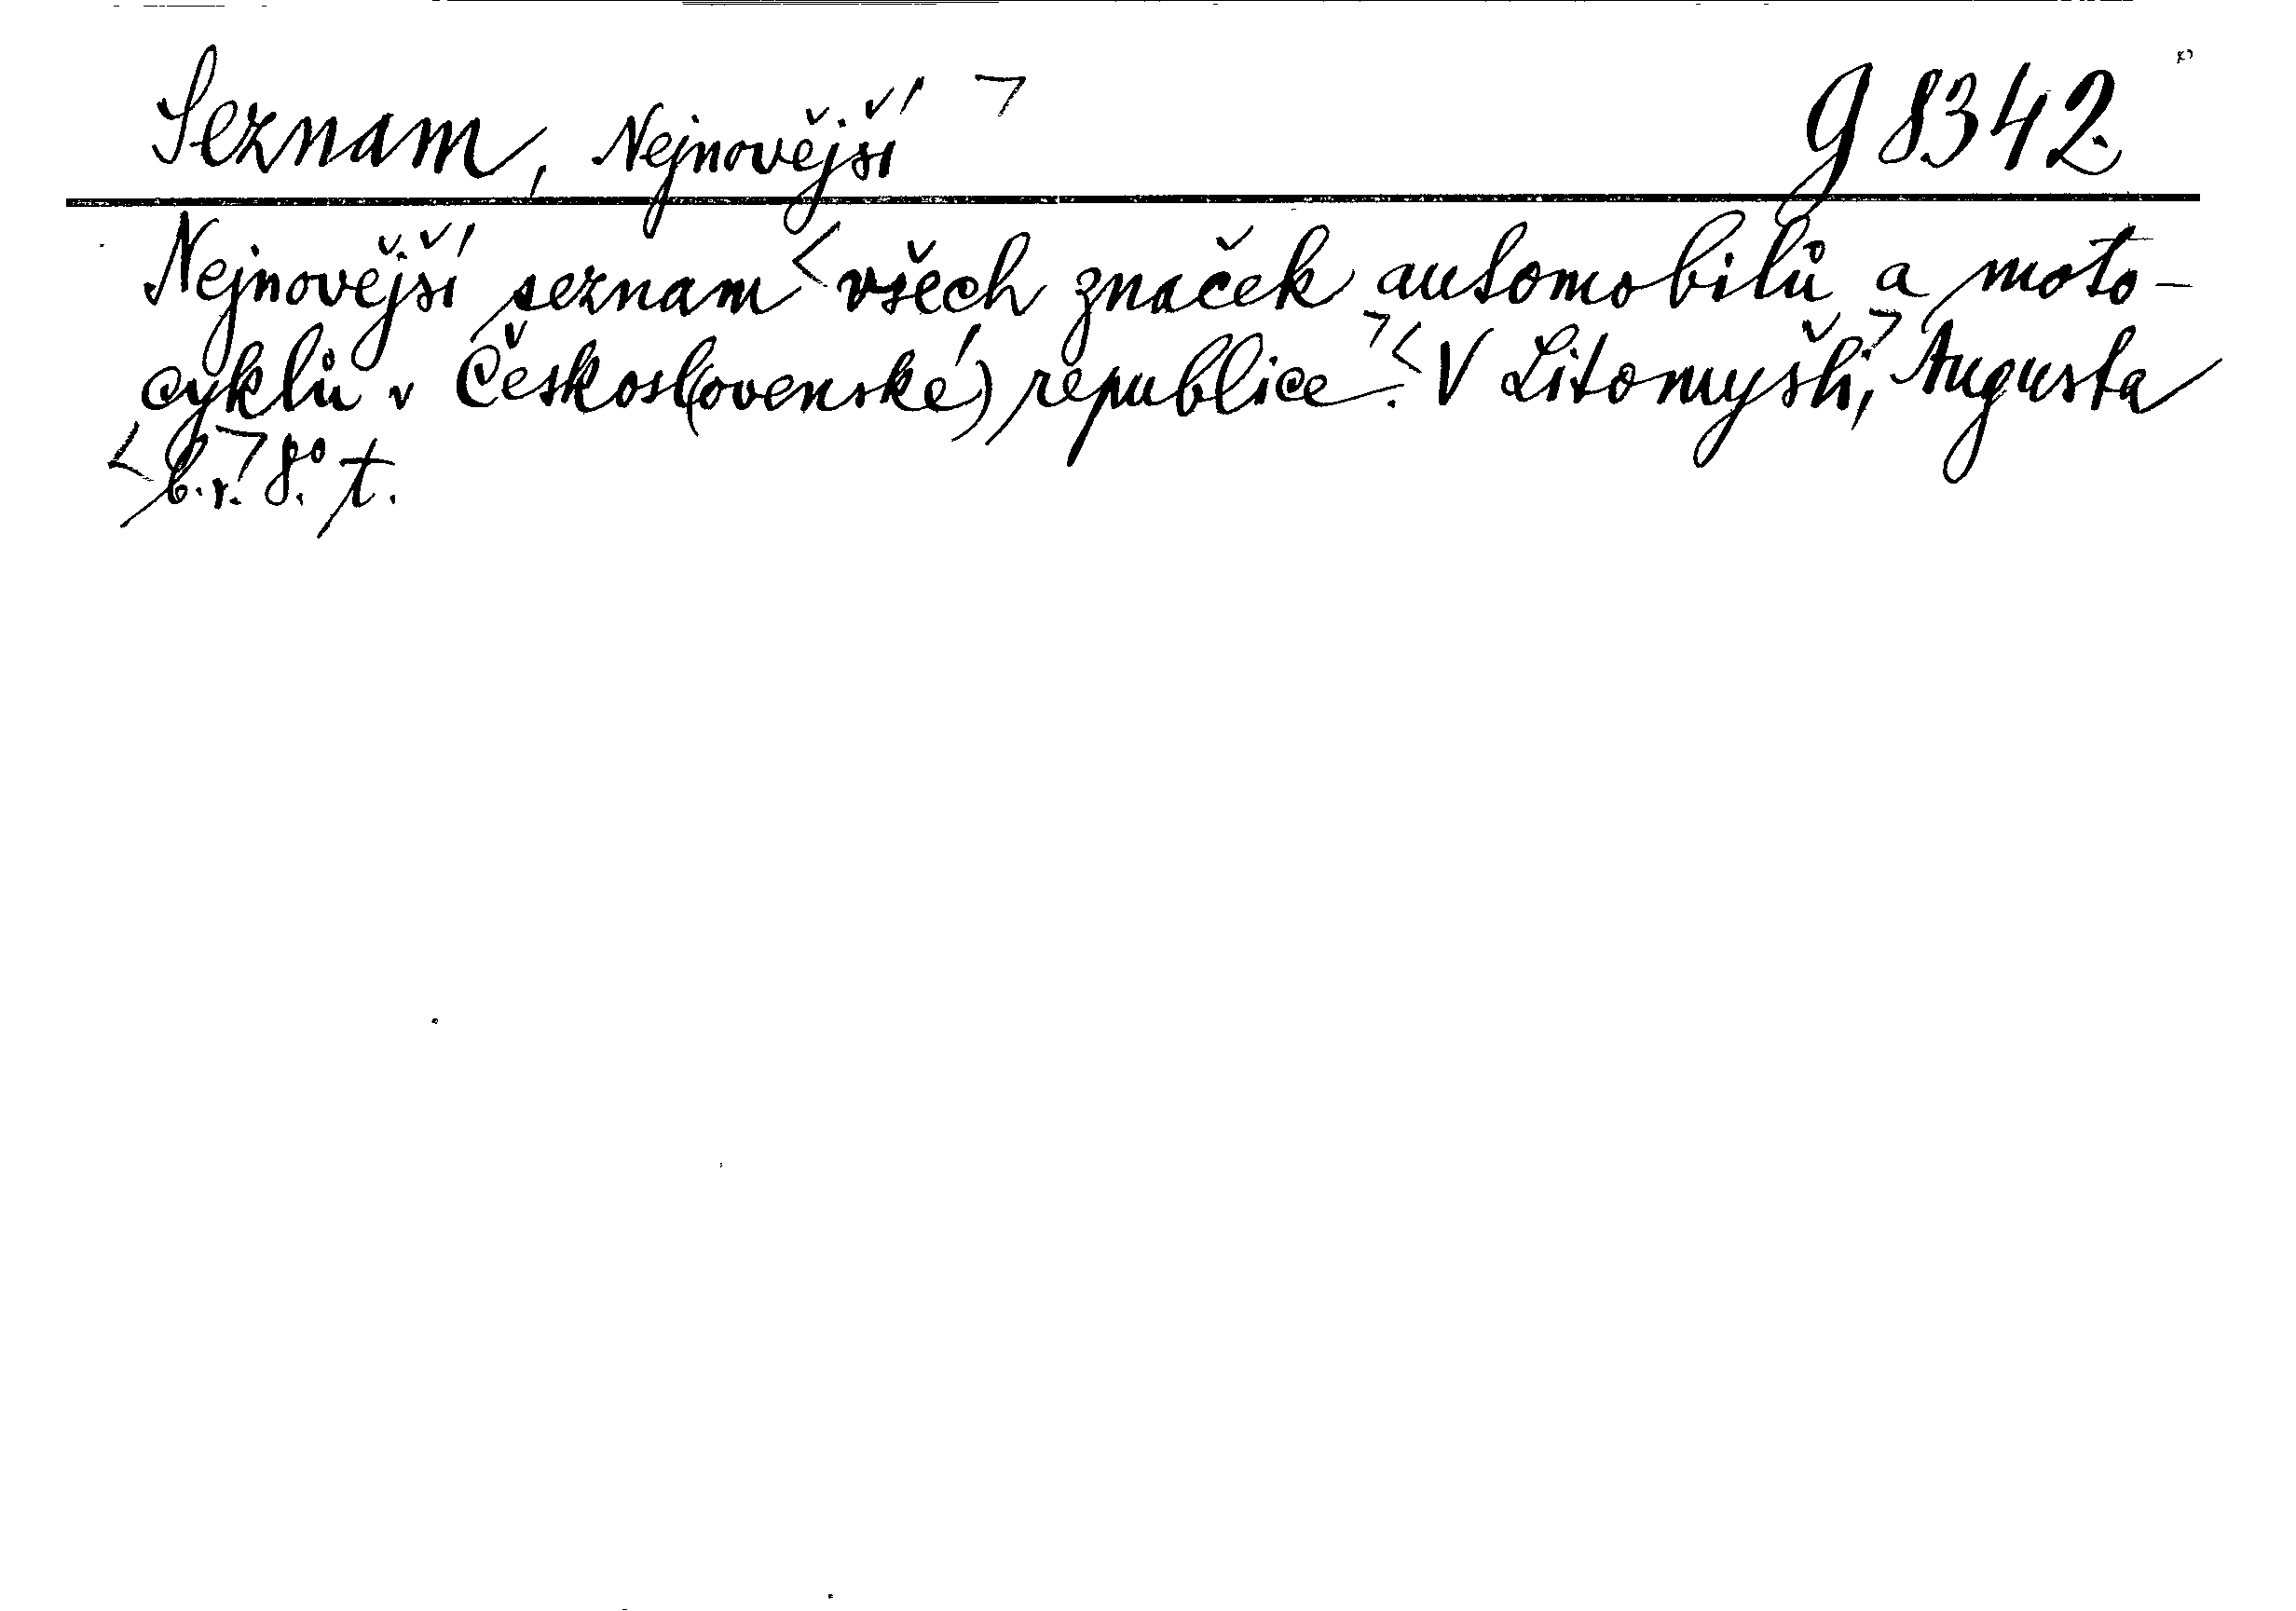 Seznam, Nejnovější ㄱ g 8342.
Nejnovější seznam < všech značek automobilů a moto-
cyklů v Českosl(ovenské) republice.ㄱ< V Litomyšli,ㄱ Augusta
< b.r.ㄱ 8.° t.